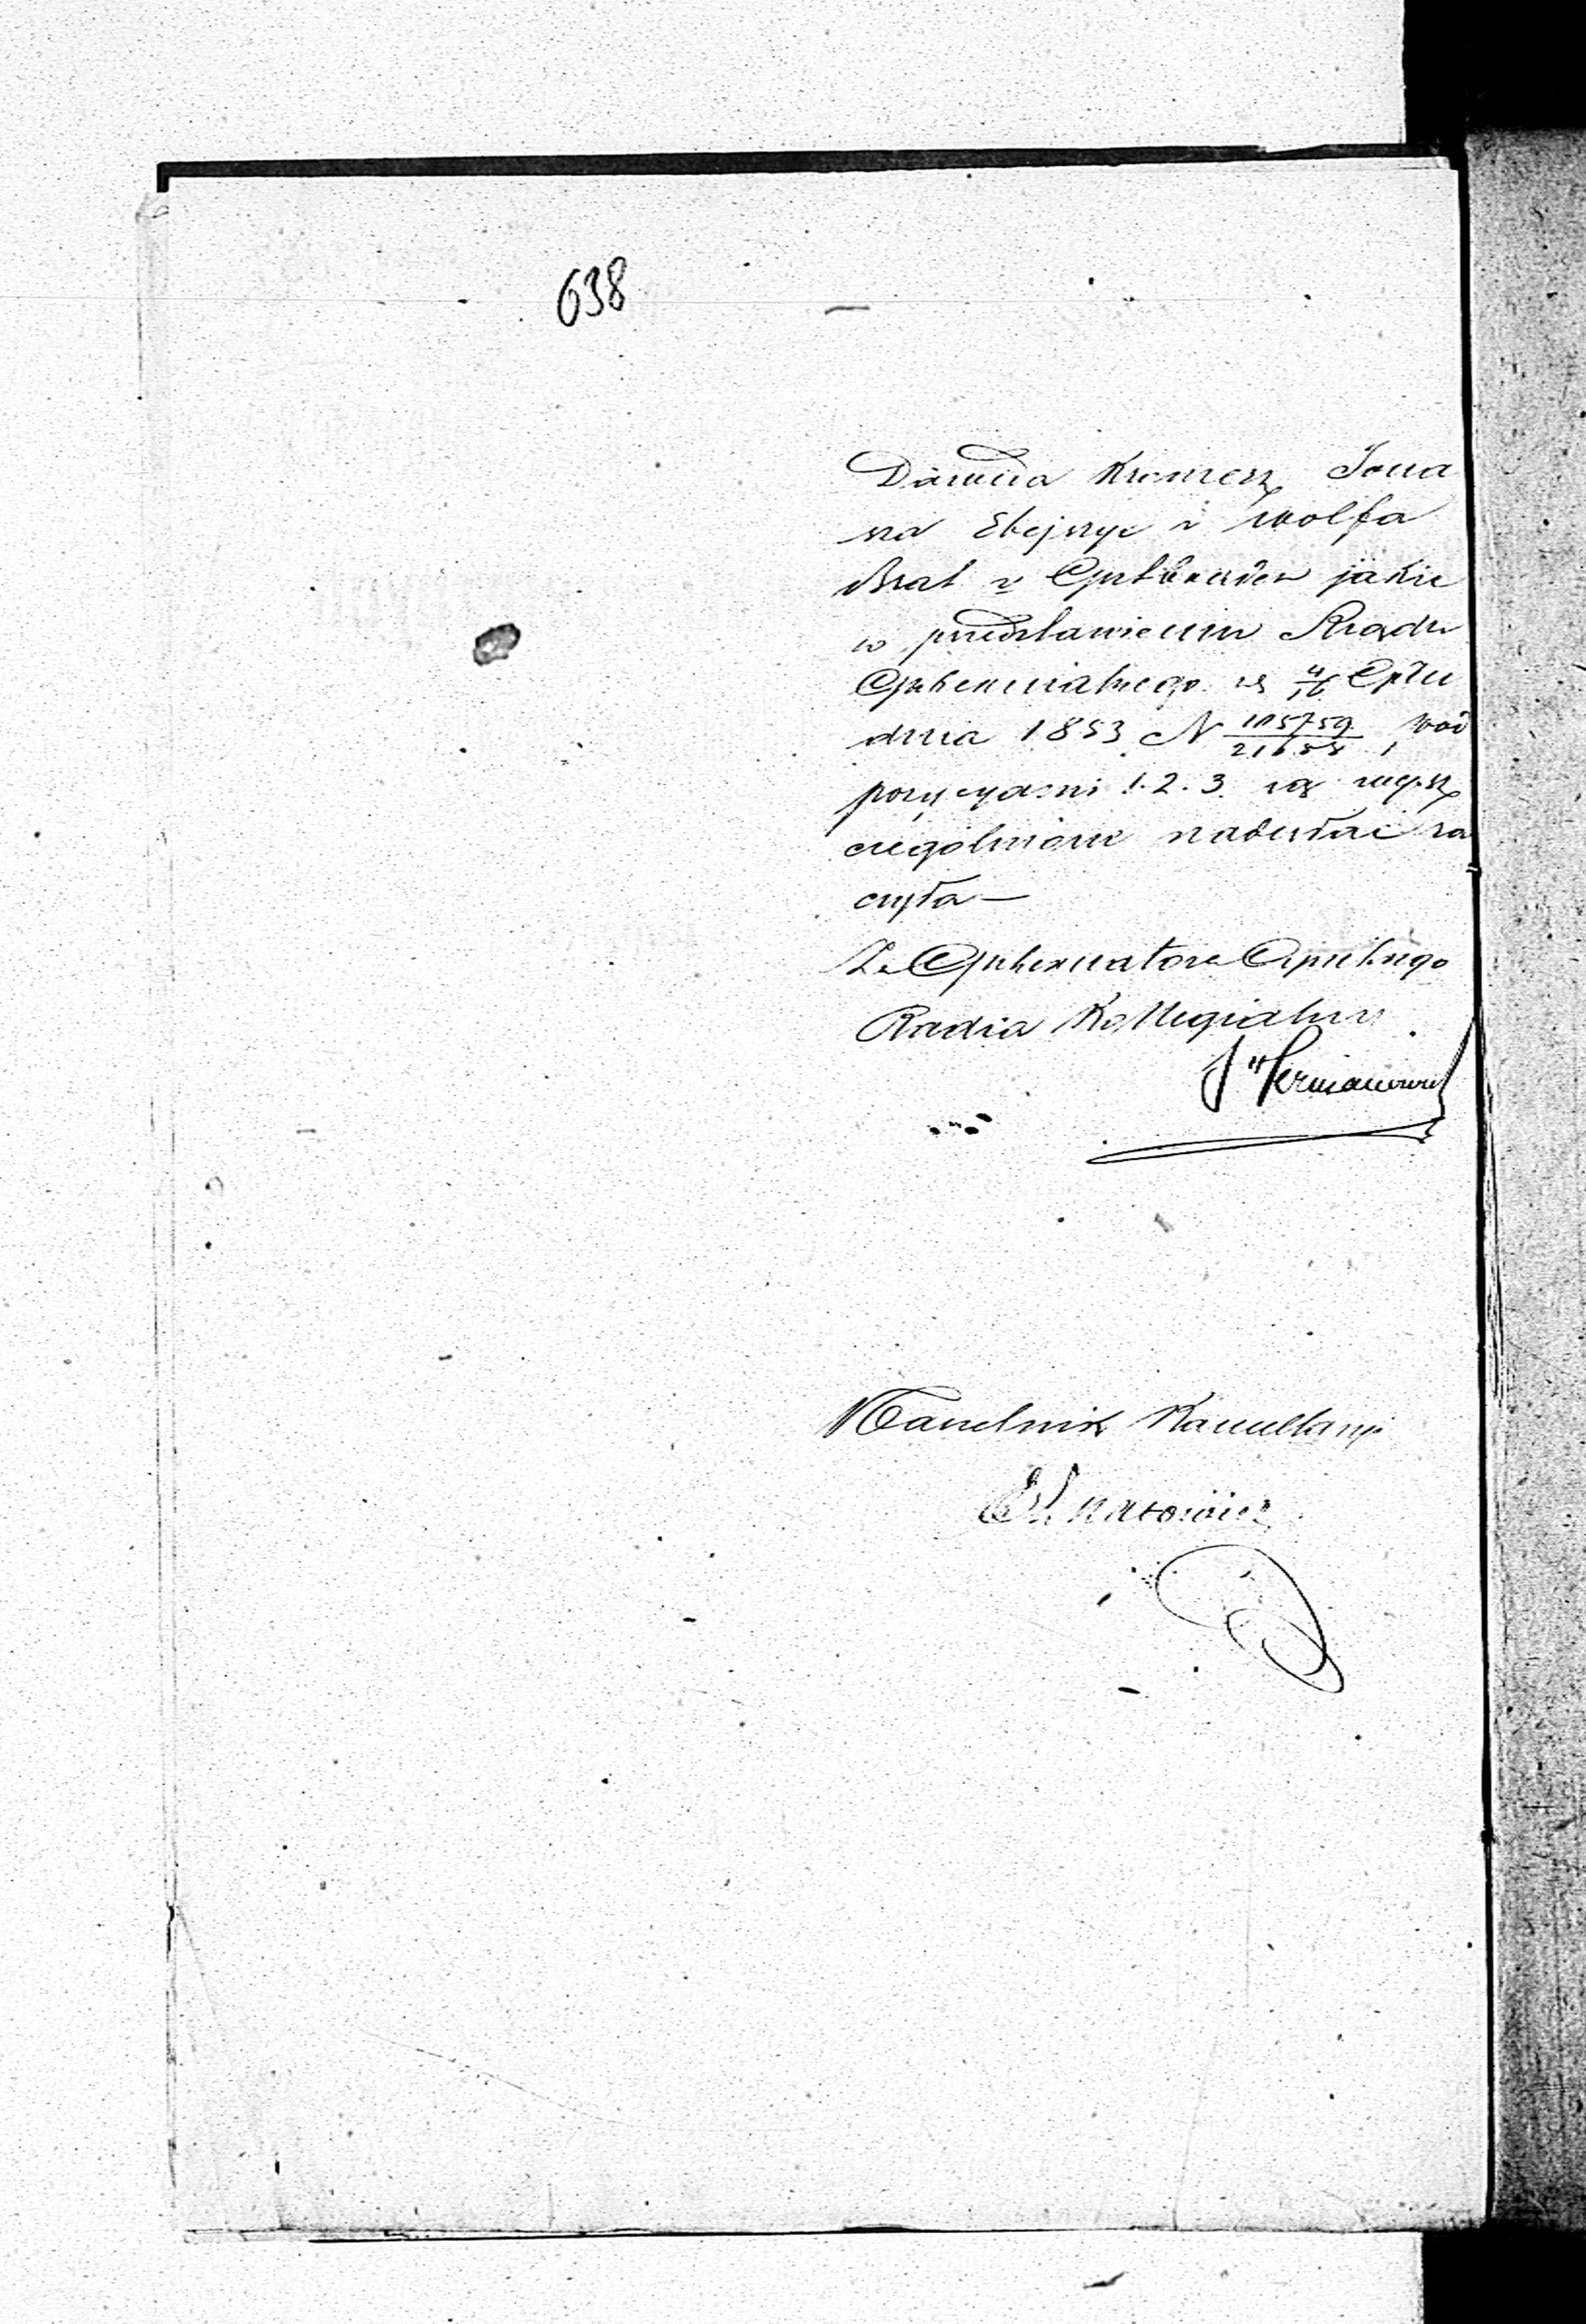 638
Dawida Kromen, Jona
na Ekejzyc i Wolfa
Brat z Gubernien jakie
w przedstawieniu Rządu
Gubernialnego z 4/16 Gru
dnia 1853 N 105759/21658, pod
pozycyami 1. 2. 3. są wysz
czególnione nadesłać ra
czyła —
Za Gubernatora Cywilnego
Radca Kollegialny
J Hermanow
Naczelnik Kancellaryi